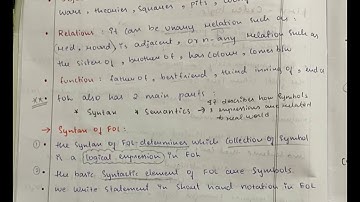 wars, theories, squares, pits,
• Relations : it can be unary relation such as :
red, round, is adjacent, or n-any relation such as
the sister of, brother of, has colour, comes b/w
• function : father of, bestfriend, third inning of, end o
*** FOL also has 2 main parts
* Syntax * Semantics → It describes how symbols
& expressions are related
to real world
→ Syntax of FOL :
① • the syntax of FOL determines which collection of symbol
is a logical expression in FOL
② • the basic syntactic element of FOL are symbols.
we write statement in short hand notation in FOL